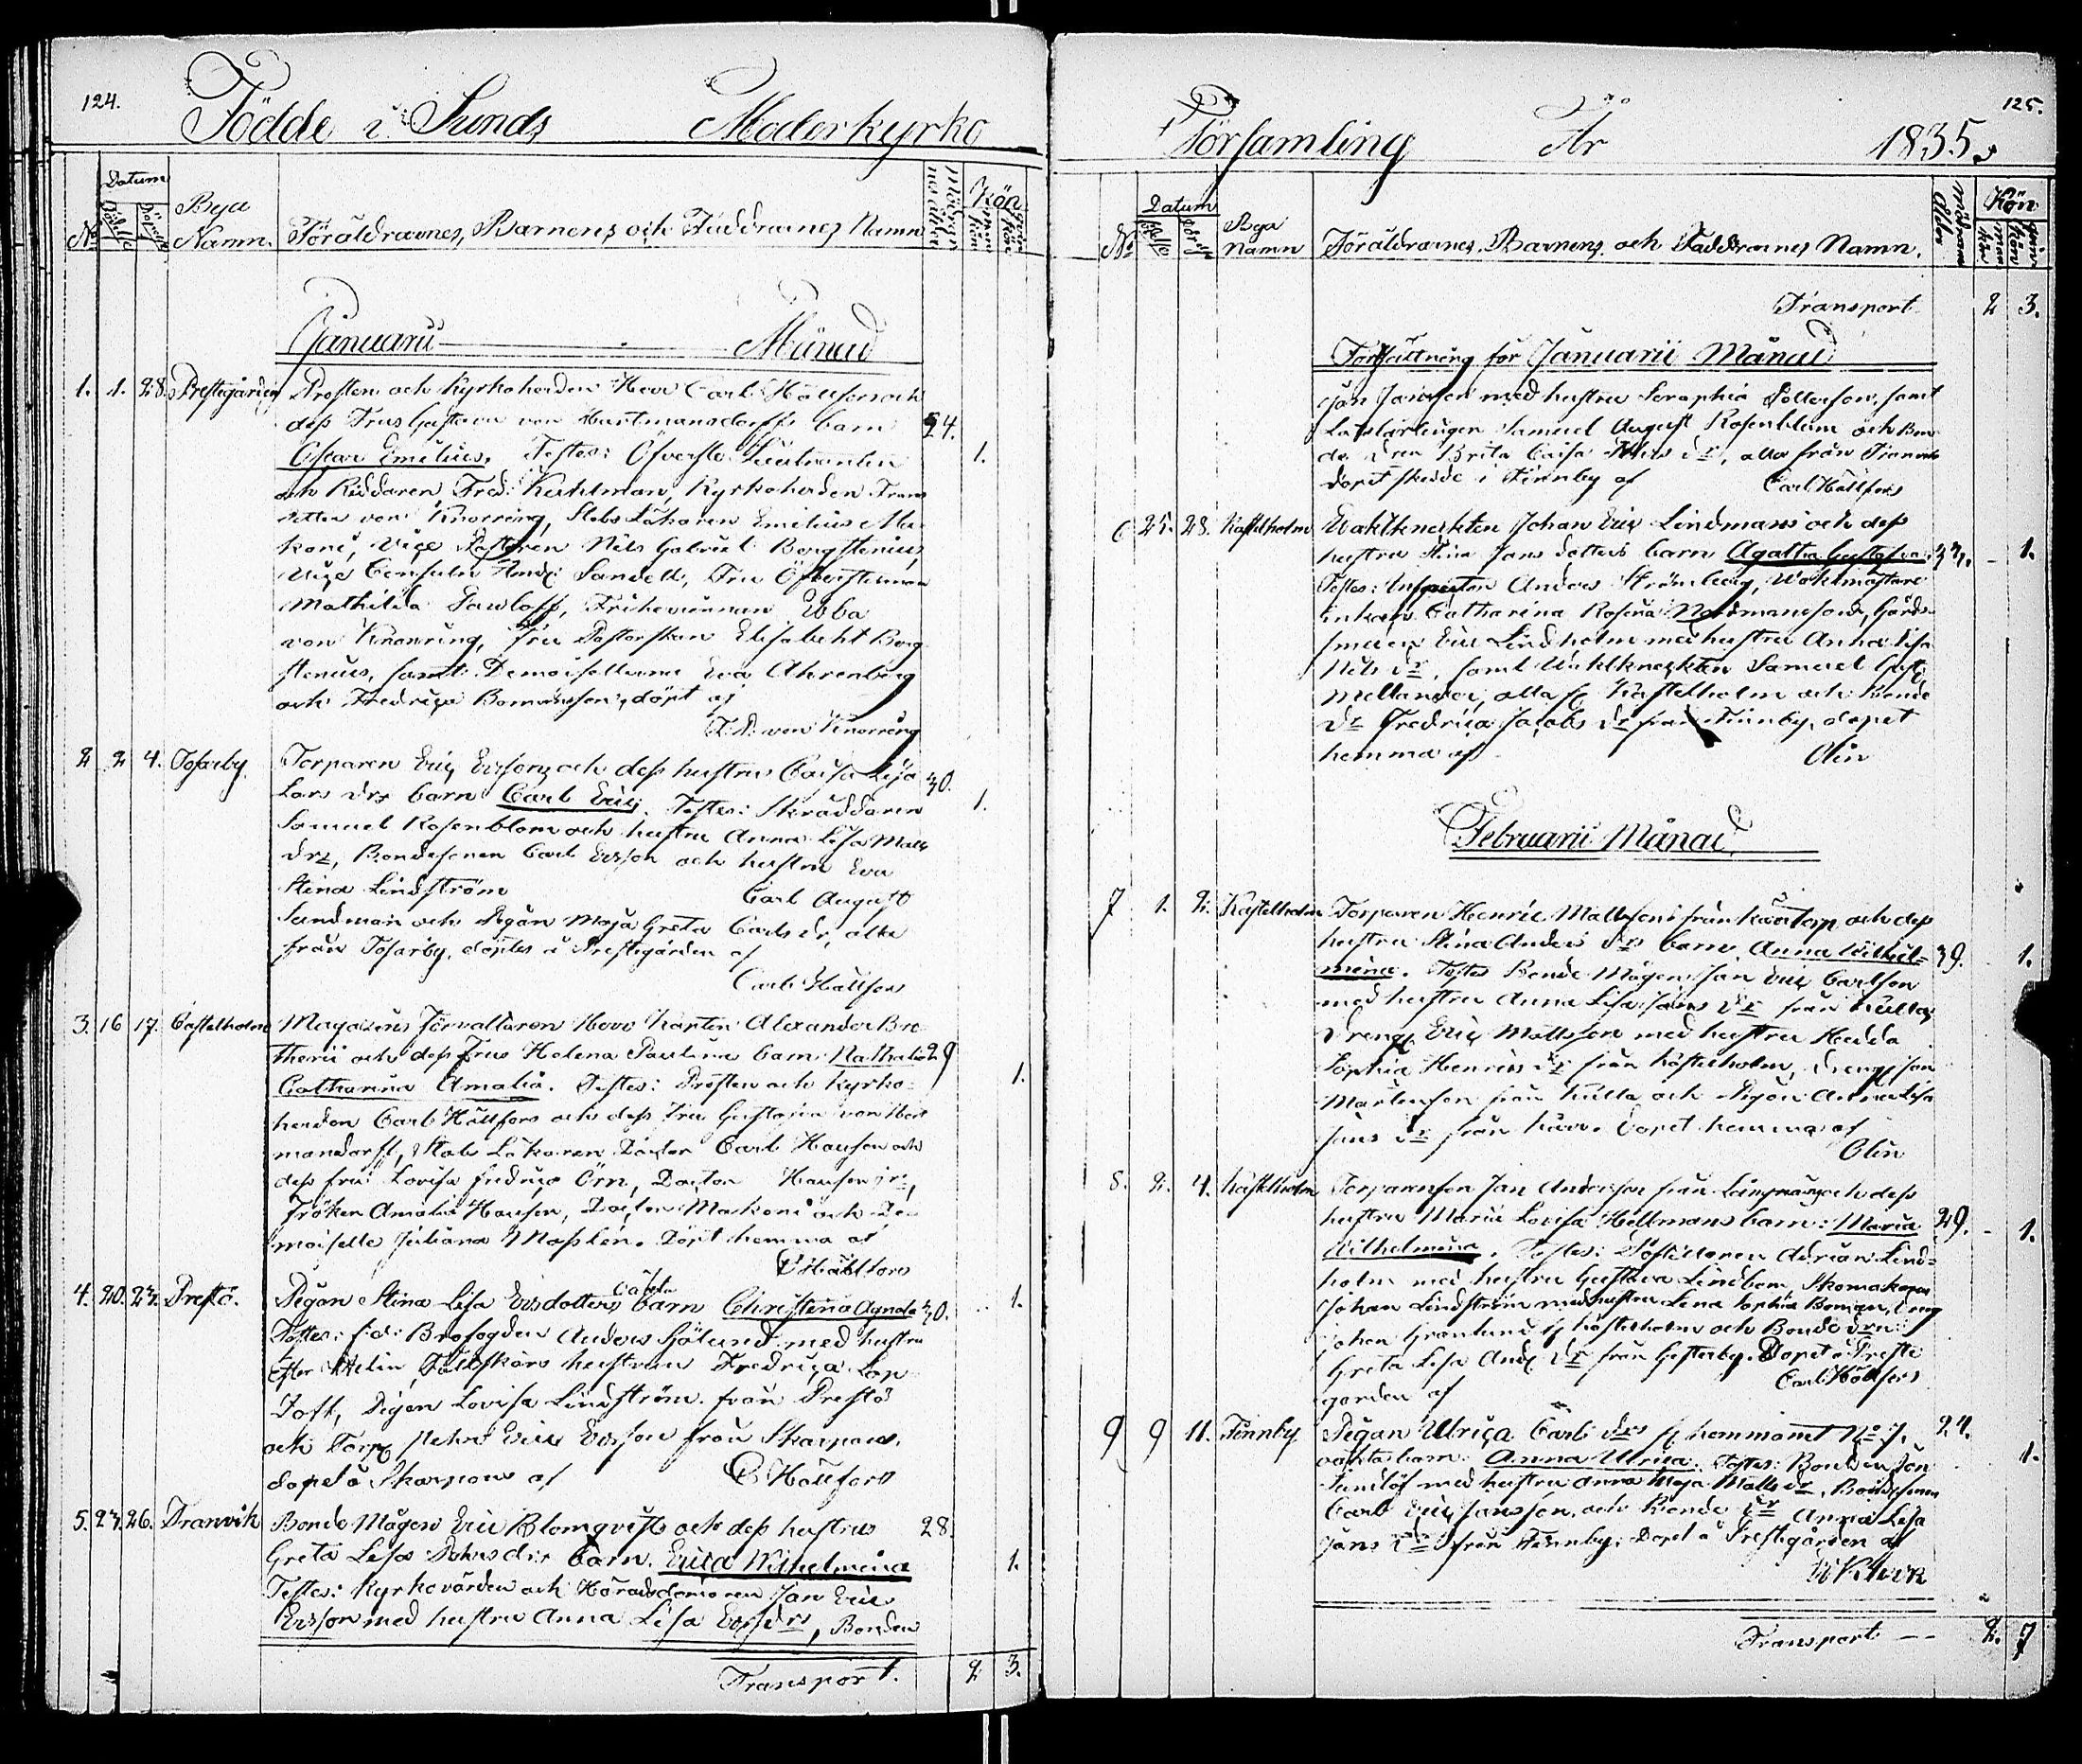 124.
Födde i Sunds Moderkyrko
No
Datum
Födelse
Döpelse
Bya Namn.
Föräldrarnes, Barnens och Faddrarnes Namn
Modrarnas ålder
Kön
Januarii Månad
1. 1. 28. Prestegården Prosten och Kyrkoherden Herr Carl Hällfors och
dess Frus Gustava von Hartmansdorffs barn 24.
Oscar Emilius. Testes: Öfverste Lieutnanten 1.
och Riddaren Fred: Kuhlman, Kyrkoherden Frans
von Knorring, Stabs Läkaren Emilius Ma-
koni, Vice Pastoren Nils Gabriel Bergstenius,
Vice Consuln And: Sandell, Fru Öfverstinnan
Mathilda Pawloff, Friherrinnan Ebba
von Knorring, Fru Pastorskan Elisabeht Berg
stenius, samt Demoisellerna Eva Ahrenberg
och Fredrica Bomansson, döpt af
F. P. von Knorring
2 2 4. Tosarby. Torparen Eric Ersson och dess hustrus Caisa Lisa 30.
Lars drs barn Carl Eric. Testes: Skräddaren 1.
Samuel Rosenblom och hustru Anna Lisa Matts
drr, Bondesonen Carl Ersson och hustru Eva
Stina Lindström Carl August
Sundman och Pigan Maja Greta Carls dr, alla
från Tosarby, döptes å Prestegården af
Carl Hällfors
3. 16 17. Castelholm Magasins Förvaltaren Herr Kapten Alexander
och dess Frus Helena Paulina barn Nathalia 29
Catharina Amalia. Testes: Prosten och Kyrko- 1.
herden Carl Hällfors och dess Fru Gustava von Hart
mansdorff, Stabs Läkaren Doctor Carl Hausen och
dess fru Lovisa Fredrica Örn, Doctor Hausen jr,
Fröken Amalia Hausen, Doctor Makoni och De-
moiselle Juliana Masslén. Döpt hemma af
C Hällfors
4. 20. 23. Prestö. Pigan Stina Lisa Ersdotters oäkta barn Christina Agnata 30. 1.
Testes: f:d: Brofogden Anders Sjölund med hustru
Ester Helin, Fältskärs hustrun Fredrica
Toft, Pigan Lovisa Lindström från Prestö
och Torp Eric Ersson från Skarpans,
döpt å Skarpans af C Hällfors
5. 23. 26. Tranvik Bonde Mågen Eric Blomqvists och dess hustrus 28.
Greta Lisa Johns drs barn. Erica Wilhelmina 1.
Testes: Kyrkovärden och Häradsdomaren Jan Eric
Ersson med hustru Anna Lisa Ers drr, Bonden
Transport. 2 3.
125.
Församling År 1835.
No
Datum
Bya Namn
Föräldrarnes, Barnens och Faddrarnes Namn.
Mödrarnas ålder
Kön
Transport 2 3.
Fortsättning för Januarii Månad
Jan Jansson med hustru Seraphia Söllerson, samt
Samuel August Rosenblom och Bon
de dren Brita Caisa Nils dr, alla från Tranvik
dopet skedde i Finnby af Carl Hällfors
6 25. 28. Kastelholm Waktknekten Johan Eric Lindmans och dess
hustru Stina Jans dotters barn Agatha Gustafva 33. 1.
Testes: Inspector Anders Strömberg, Waktmästare
Enkan Catharina Rosina Nordmansson, Gårds-
Eric Lindholm med hustru Anna Lisa
Nils dr, samt Waktknekten Samuel Gust:
Mellander, alla fr Kastelholm och Bonde
dr Fredrica Jacobs dr från Finnby, döpet
hemma af Olin
Februarii Månad.
7 1. 2. Kastelholm Torparen Henric Mattssons från torp och dess
hustru Stina Anders drs barn Anna Wilhel- 39. 1.
mina. Testes Bonde Mågen Jan Eric Carlsson
med hustru Anna Lisa Jans dr från Kulla,
Dreng Eric Mattsson med hustru Hedda
Sophia Henrics dr från Kastelholm, dreng Jan
Mårtensson från Kulla och Pigan Anna Lisa
Jans dr från . Döpet hemma af
Olin
8. 2. 4. Kastelholm Torparesson Jan Andersson från och dess
hustru Maria Lovisa Hellmans barn: Maria 29. 1.
Wilhelmina. Testes: Adrian Lind-
holm med hustru Gustava Lindbom, Skomakaren
Johan Lindström med hustru Lena Sophia Boman, dreng
Johan Granlund fr Kastelholm och Bonde dren
Greta Lisa And: dr från Gesterby. Döpet å Preste
gården af Carl Hällfors
9 9 11. Finnby Pigan Ulrica Carls drs fr hemmanet No 7. 24.
oäkta barn Anna Ulrica. Testes: Bonden Jan 1.
Sundlöf med hustru Anna Maja Matts dr, Bondesonen
Carl Eric Jansson, och Bonde dr Anna Lisa
Jans dr från Finnby. Döpt å Prestegården af
Transport 2. 7